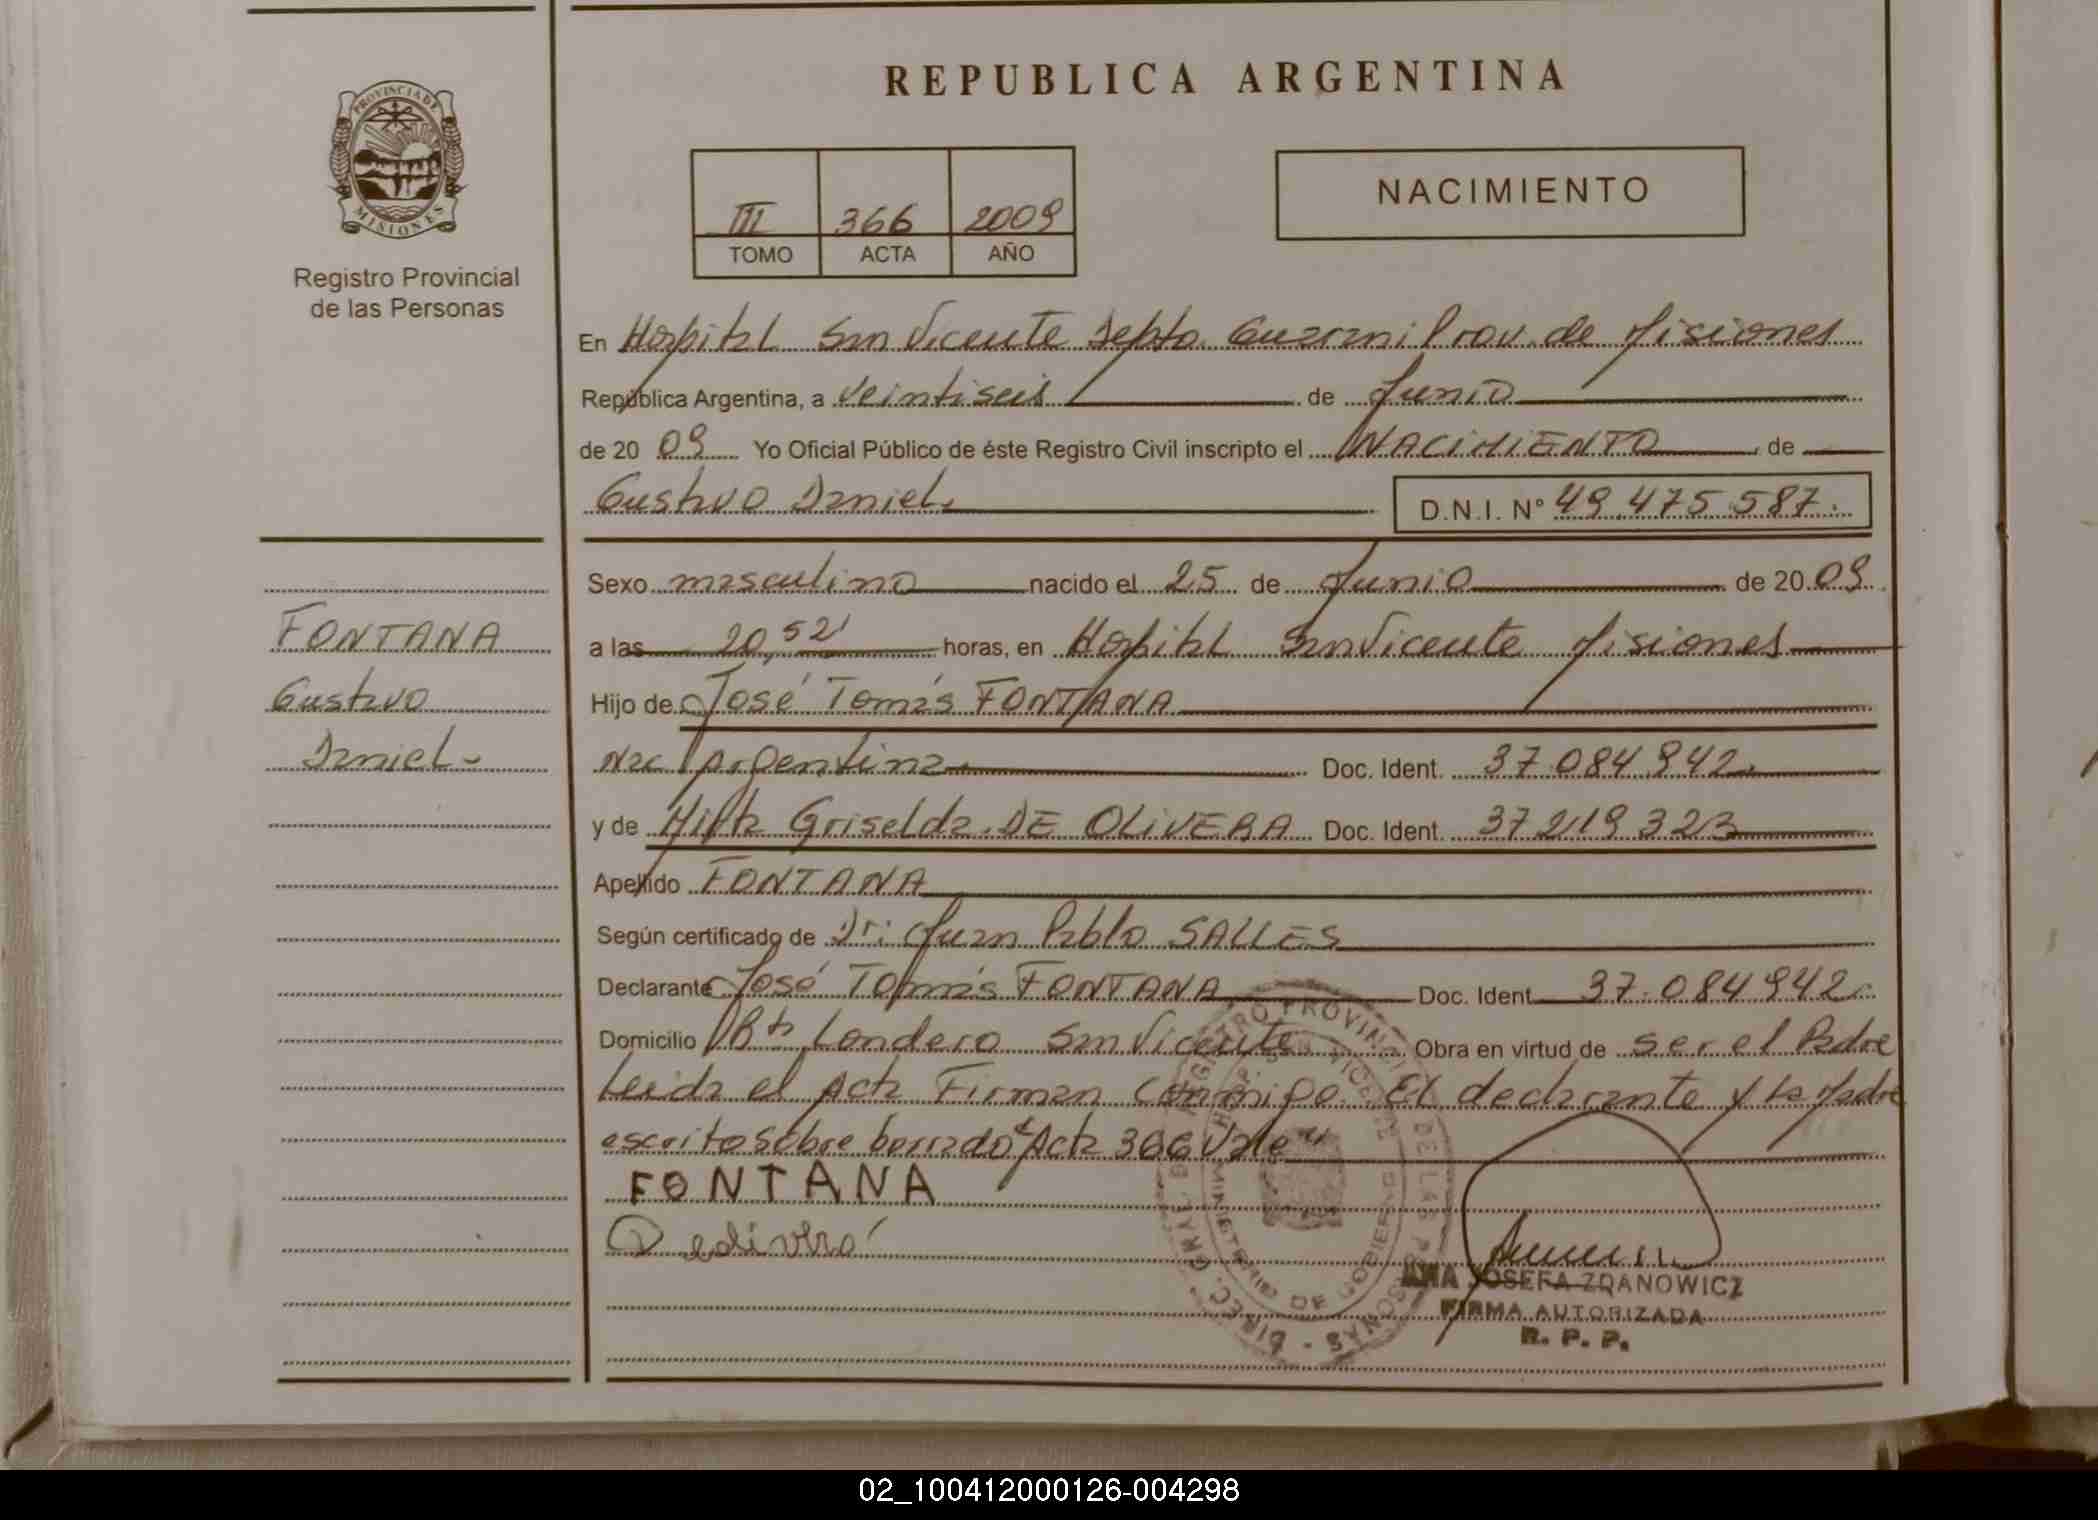 REPUBLICA ARGENTINA
PROVINCIA DE
MISIONES
Registro Provincial
de las Personas
III 366 2009
TOMO ACTA AÑO
NACIMIENTO
En Hospital San Vicente Depto. Guarani Prov. de Misiones
República Argentina, a veintiseis de Junio
de 20 09 Yo Oficial Público de éste Registro Civil inscripto el NACIMIENTO de
Gustavo Daniel D.N.I. Nº 49.475.587.
Sexo masculino nacido el 25 de Junio de 20 09
FONTANA
Gustavo
Daniel
a las 20,52 horas, en Hospital San Vicente Misiones
Hijo de José Tomás FONTANA
Nac Argentina Doc. Ident. 37.084.942.
y de Griselda DE OLIVERA Doc. Ident. 37.219.323
Apellido FONTANA
Según certificado de Dr: Juan Pablo SALLES
Declarante José Tomás FONTANA Doc. Ident. 37.084.942.
Domicilio Londero San Vicente Obra en virtud de ser el Padre
Leida el Acta Firman Conmigo El declarante y la Madre
escrito sobre borrado "Acta 366 Vale"
FONTANA
DIREC. GRAL. DEL REGISTRO PROVINCIAL DE LAS PERSONAS
MINISTERIO DE GOBIERNO
ANA JOSEFA ZDANOWICZ
FIRMA AUTORIZADA
R. P. P.
02_100412000126-004298